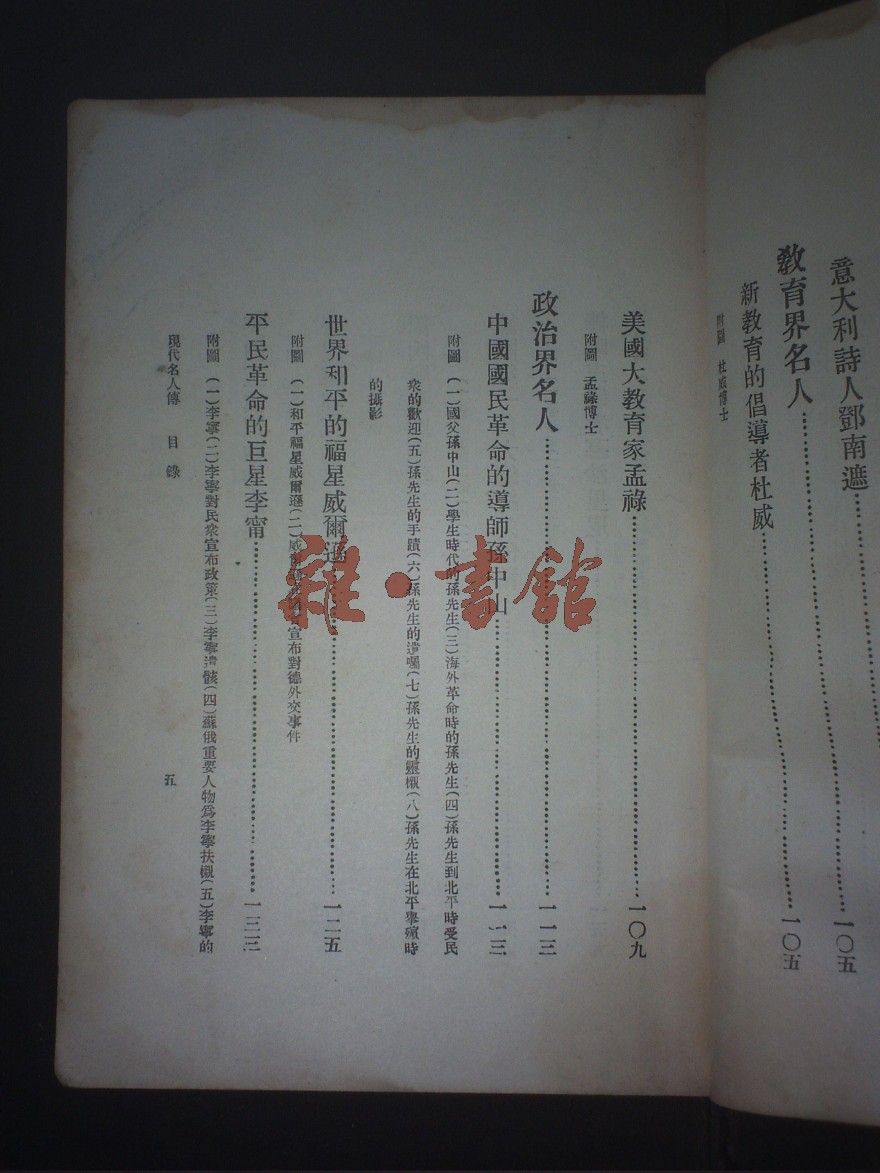 意大利詩人鄧南遮……一〇五
教育界名人……一〇五
新教育的倡導者杜威……
附圖 杜威博士
美國大教育家孟祿……一〇九
附圖 孟祿博士
政治界名人……一一三
中國國民革命的導師孫中山……一一三
附圖 (一)國父孫中山(二)學生時代的孫先生(三)海外革命時的孫先生(四)孫先生到北平時受民
衆的歡迎(五)孫先生的手蹟(六)孫先生的遺囑(七)孫先生的靈櫬(八)孫先生在北平舉殯時
的攝影
世界和平的福星威爾遜……一二五
附圖 (一)和平福星威爾遜(二)威爾宣布對德外交事件
平民革命的巨星李甯……一三三
附圖 (一)李寧(二)李寧對民衆宣布政策(三)李寧遺骸(四)蘇俄重要人物爲李寧扶櫬(五)李寧的
現代名人傳 目錄 五
雜·書館